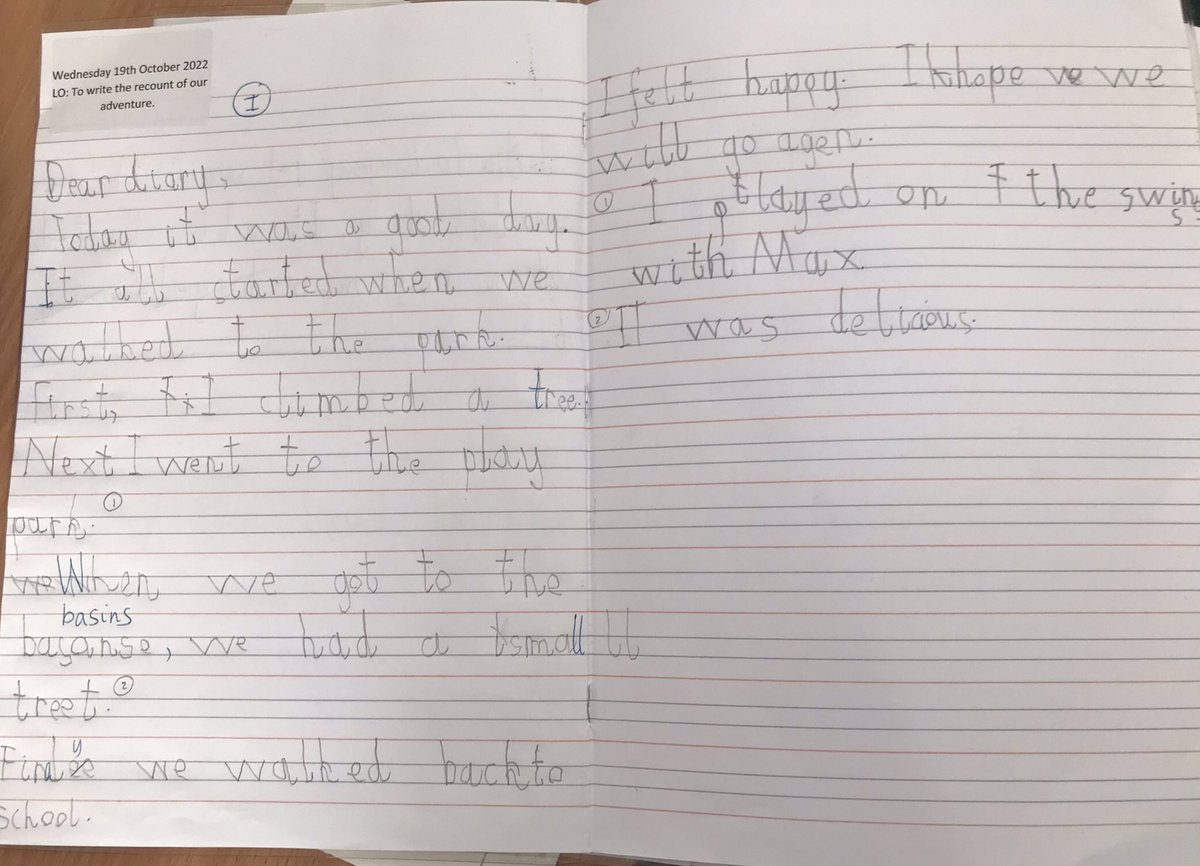 Wednesday 19th October 2022
LO: To write the recount of our
adventure.
I
Dear diary,
Today it was a good day.
It all started when we
walked to the park.
first, I climbed a tree.
Next I went to the play
park. ①
When we got to the
basins
baganse, we had a small
treet. ②
Finaly we walked back to
school.
I felt happy. I hope we
will go agen.
① I played on the swings
with Max
② It was delicious.